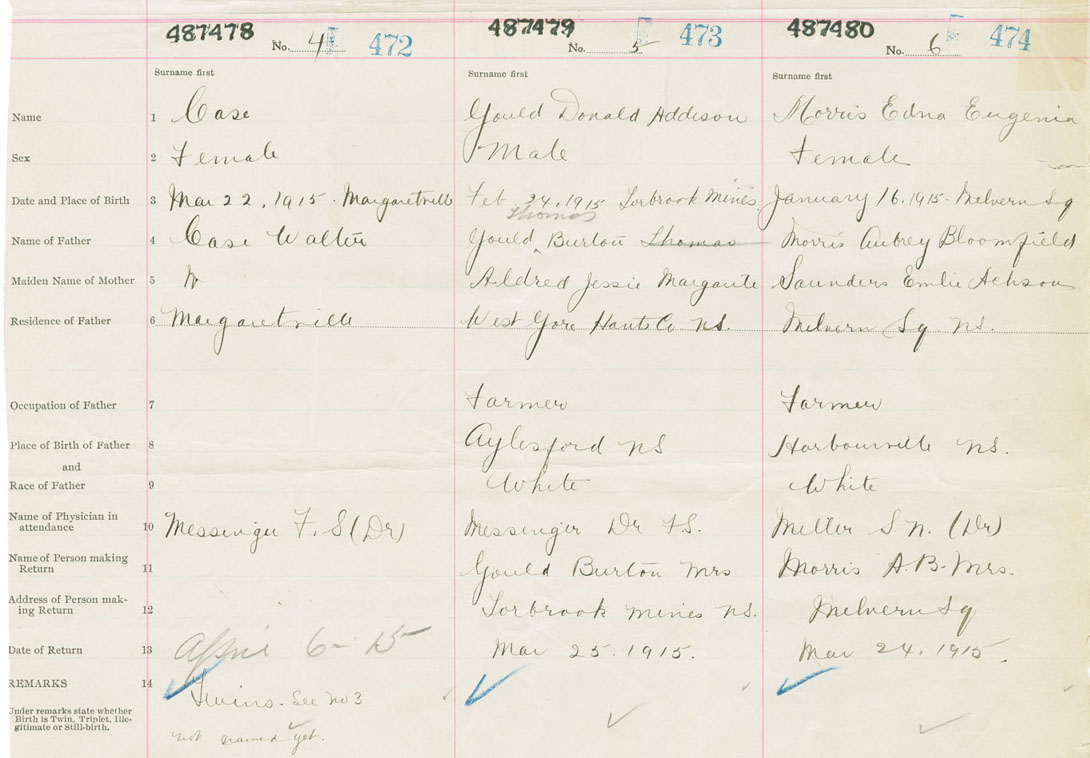 487478 487479 487480
No. 4 472 No. 5 473 No. 6 474
Surname first Surname first Surname first
Name 1 Case Gould Donald Addison Morris Edna Eugenia
Sex 2 Female Male Female
Date and Place of Birth 3 Mar 22, 1915 - Margaretville Feb 24, 1915 Torbrook Mines January 16. 1915. Melvern Sq
Thomas
Name of Father 4 Case Walter Gould ‸ Burton Thomas Morris Aubrey Bloomfield
Maiden Name of Mother 5 Aldred Jessie Margarite Saunders Emlie Achson
Residence of Father 6 Margaretville West Gore Hants Co. N.S. Melvern Sq NS.
Occupation of Father 7 Farmer Farmer
Place of Birth of Father 8 Aylesford NS Harbourville NS.
and
Race of Father 9 White White
Name of Physician in
attendance 10 Messinger F. S (Dr) Messenger Dr F.S. Miller S N. (Dr)
Name of Person making
Return 11 Gould Burton Mrs Morris A.B. Mrs.
Address of Person mak-
ing Return 12 Torbrook Mines NS. Melvern Sq
Date of Return 13 April 6 - 15 Mar 25. 1915. Mar 24. 1915.
REMARKS 14 Twins. See No 3
Under remarks state whether
Birth is Twin, Triplet, Ille-
gitimate or Still-birth.
not named yet.